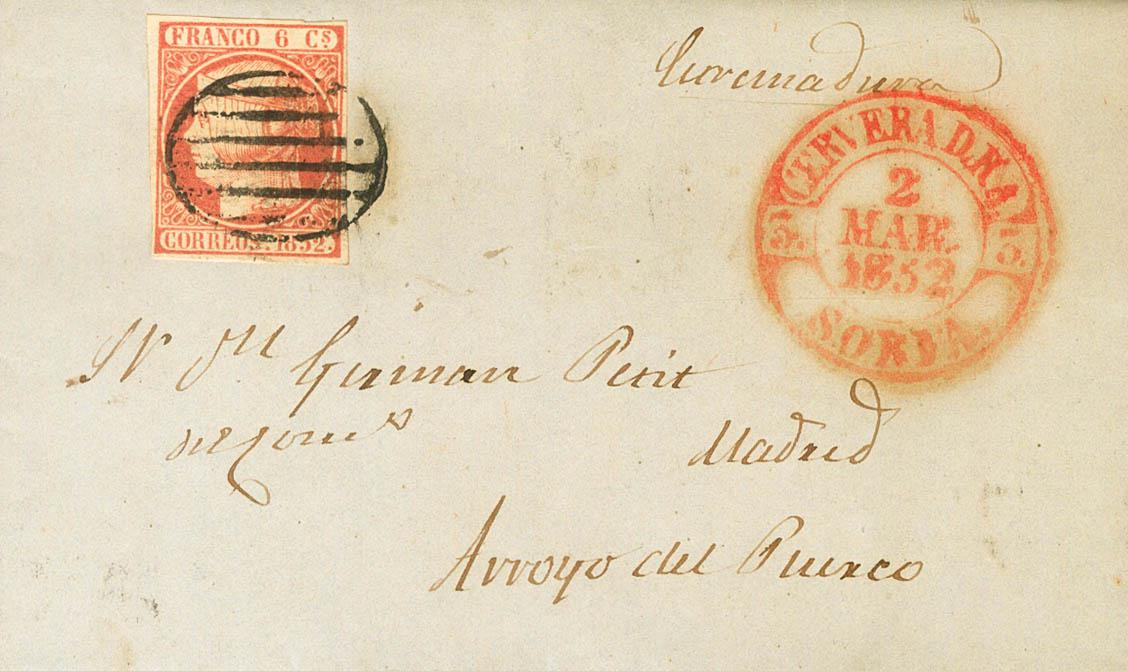 FRANCO 6 Cs
CORREOS. 1852.
Estremadura
CERVERA D.R.A.
5.
5.
2
MAR.
1852
SORIA.
Sr Dn German Petit
Madrid
Arroyo del Puerco